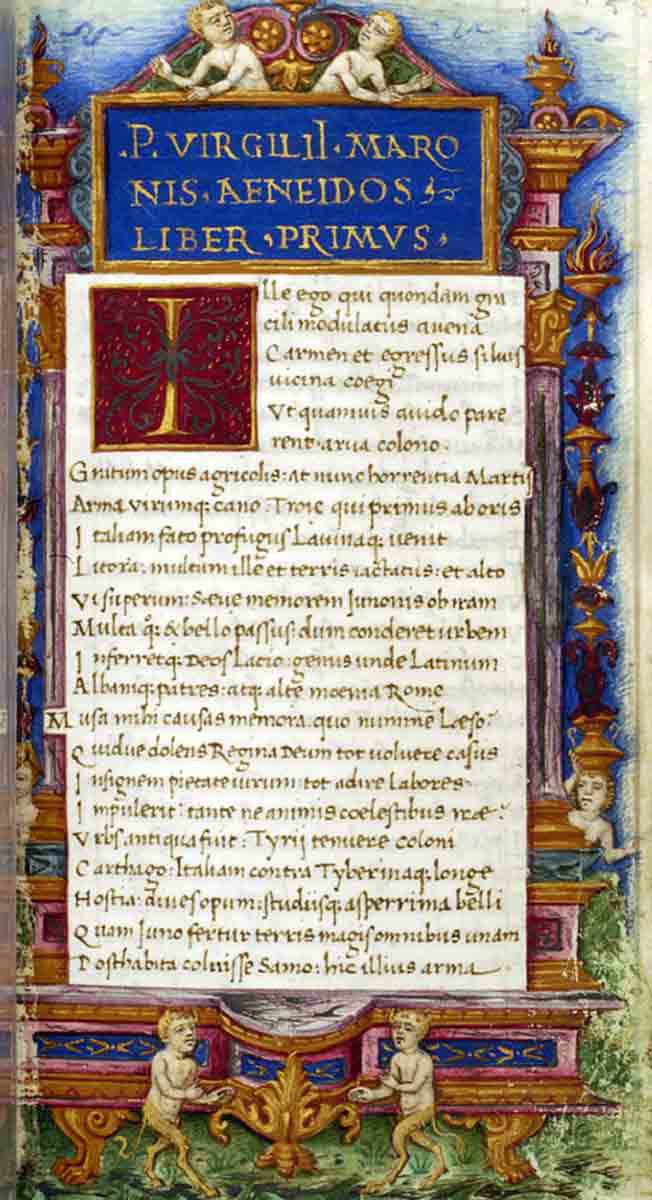 .P. VIRGILII. MARO
NIS. AENEIDOS
LIBER. PRIMVS.
Ille ego qui quondam gra
cili modulatus avena
Carmen et egressus siluis
uicina coegi
Vt quamuis auido pare
rent. arva colono.
Gratum opus agricolis: at nunc horrentia Martis
Arma virumq; cano: Troie qui primus ab oris
Italiam fato profugus Lavinaq; uenit
Litora: multum ille et terris iactatus: et alto
Vi superum: Sæve memorem Junonis ob iram
Multa q; & bello passus: dum conderet urbem
Inferretq; Deos Lacio: genus unde Latinum
Albaniq; patres: atq; altę moenia Romę
Musa mihi causas memora. quo numine Læso?
Quidve dolens Regina Deum tot voluere casus
Insignem pietate uirum: tot adire Labores
Impulerit: tantę ne animis coelestibus iræ?
Vrbs antiqua fuit: Tyrii tenuere coloni
Carthago: Italiam contra Tyberinaq; longe
Hostia: dives opum: studiisq; asperrima belli
Quam Juno fertur terris magis omnibus unam
Posthabita coluisse Samo: hic illius arma